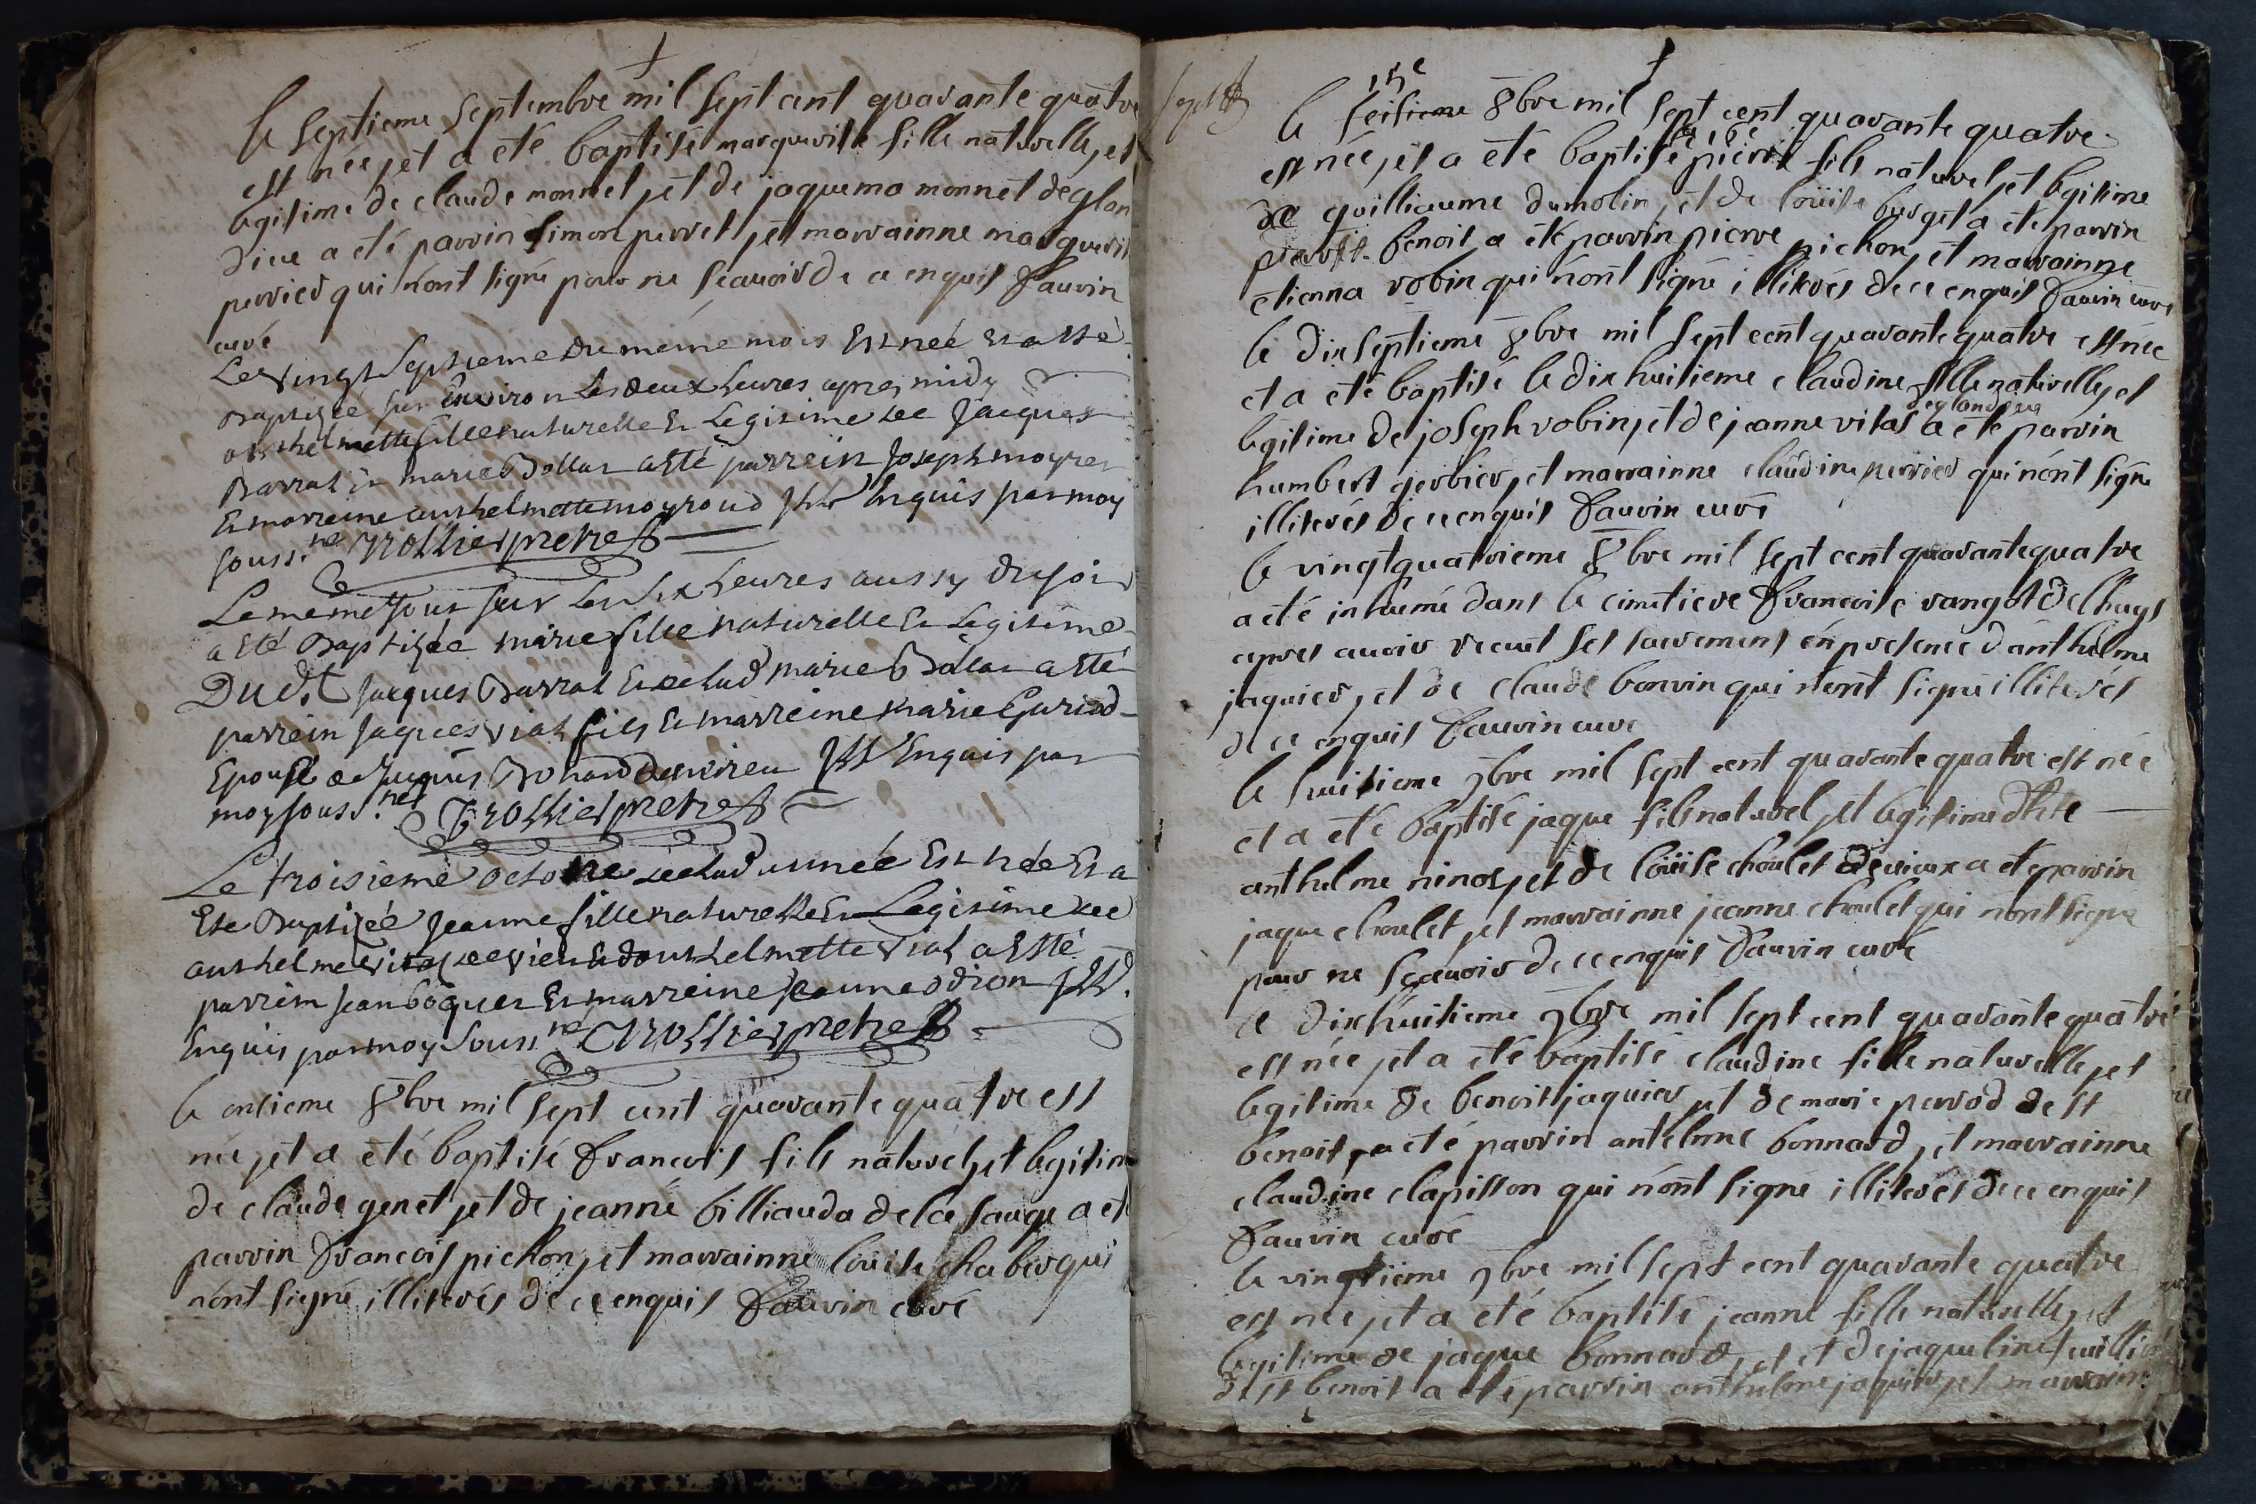 le septieme septembre mil sept cent quarante quatre
est née, et a eté baptisé marguerite fille naturelle, et
legitime de claude monnet, et de jaquema monnet deglan
dieu a eté parrin simon perret, et marrainne marguerite
perrier qui n'ont signé pour ne scauoir de ce enquis fauvin
curé
Le vingt septieme du même mois Est née Et a esté
Baptizée sur Environ Les deux heures apres midy
anthelmette fille naturelle Et Legitime de Jacques
Barral Et marie Bollar a esté parrein Joseph moyret
Et marreine anthelmette moyroud Enquis par moy
souss.né Trollier pretre
Le meme Jour sur Les six heures aussy du soir
a Eté Baptizée marie fille naturelle Et Legitime
Dud.t Jacques Barral Et de lad marie Bollar a Eté
parrein Jacques vial fils Et marreine marie
Epouse de Jacques Enquis par
moy souss.né Trollier pretre
Le troisieme octobre de lad année Est née Et a
Ete Baptizée Jeanne fille naturelle Et Legitime de
anthelme de vieu Et d'anthelmette vial a Esté
parrein Jean boquer Et marreine Jeanne odion
Enquis par moy souss.né Trollier pretre
le onsieme 8bre mil sept cent quarante quatre est
née, et a eté baptisé francois fils naturel, et legitime
de claude genet, et de jeanne billiauda de la sauge a eté
parrin francois pichon, et marrainne louise chaber qui
n'ont signé illiterés de ce enquis fauvin curé
15e
le seisieme 8bre mil sept cent quarante quatre
le 16e
est née, et a eté baptisé pierre fils naturel, et legitime
de guilliaume dumolin, et de loüise burget a ete parrin
benoit a eté parrin pierre pichon, et marrainne
etienna robin qui n'ont signé illiterés de ce enquis fauvin curé
le dixseptieme 8bre mil sept cent quarante quatre est née
et a eté baptisé le dix huitieme claudine fille naturelle, et
deglandieu
legitime de joseph robin, et de jeanne vital a eté parrin
humbert gerbier, et marrainne claudine perrier qui n'ont signé
illiterés de ce enquis fauvin curé
le vingtquatrieme 8bre mil sept cent quarantequatre
a eté inhumé dans le cimetiere francoise rangot delhuys
apres auoir recut ses sacrements en presence d'anthelme
jaquier, et de claude bonvin qui n'ont signé illiterés
de ce enquis fauvin curé
le huitieme 9bre mil sept cent quarante quatre est née
et a eté baptisé jaque fils naturel, et legitime
anthelme ninos, et de loüise choulet a eté parrin
jaque choulet, et marrainne jeanne choulet qui n'ont signé
pour ne scauoir de ce enquis fauvin curé
le dixhuitieme 9bre mil sept cent quarante quatre
est née, et a eté baptisé claudine fille naturelle, et
legitime de benoit jaquier, et de marie perrod de st
benoit, a eté parrin antelme bonnard, et marrainne
claudine clapisson qui n'ont signé illiterés de ce enquis
fauvin curé
le vingtieme 9bre mil sept cent quarante quatre
est née, et a eté baptisé jeanne fille naturelle, et
legitime de jaque bonnard, et de jaqueline
de st benoit a eté parrin anthelme jaquier, et marrainne